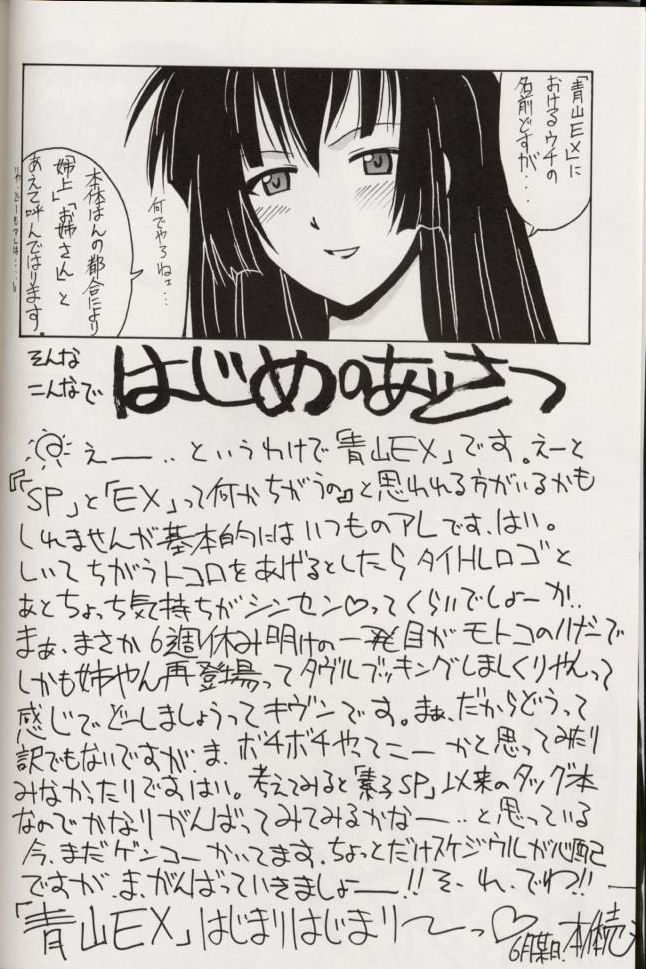 「青山EX」に
おけるウチの
名前どすが・・
何でやろねェ・・・
本体はんの都合により
姉上」「お姉さん」と
あえて呼んではります。
そんな
こんなで
はじめのあいさつ
えー・・というわけで「青山EX」です。えーと
『「SP」と「EX」って何かちがうの』と思われる方がいるかも
しれませんが基本的にはいつものアレです、はい。
しいてちがうトコロをあげるとしたらタイトルロゴと
あとちょっち気持ちがシンセン♡ってくらいでしょーか・・
まぁ、まさか6週休み明けの一発目がモトコのハダーで
しかも姉やん再登場ってダヴルブッキングしましくりやんって
感じでどーしましょうってキヴンです。まぁ、だからどうって
訳でもないですが、ま、ボチボチやってこーかと思ってみたり
みなかったりですはい。考えてみると「素子SP」以来のタッグ本
なのでかなりがんばってみてみるかなー・・と思っている
今、まだゲンコーかいてます、ちょっとだけスケジウルが心配
ですが、ま、がんばっていきましょー!!そ、れ、でわ!!
「青山EX」はじまりはじまり〜っ♡
6月某日、本体売